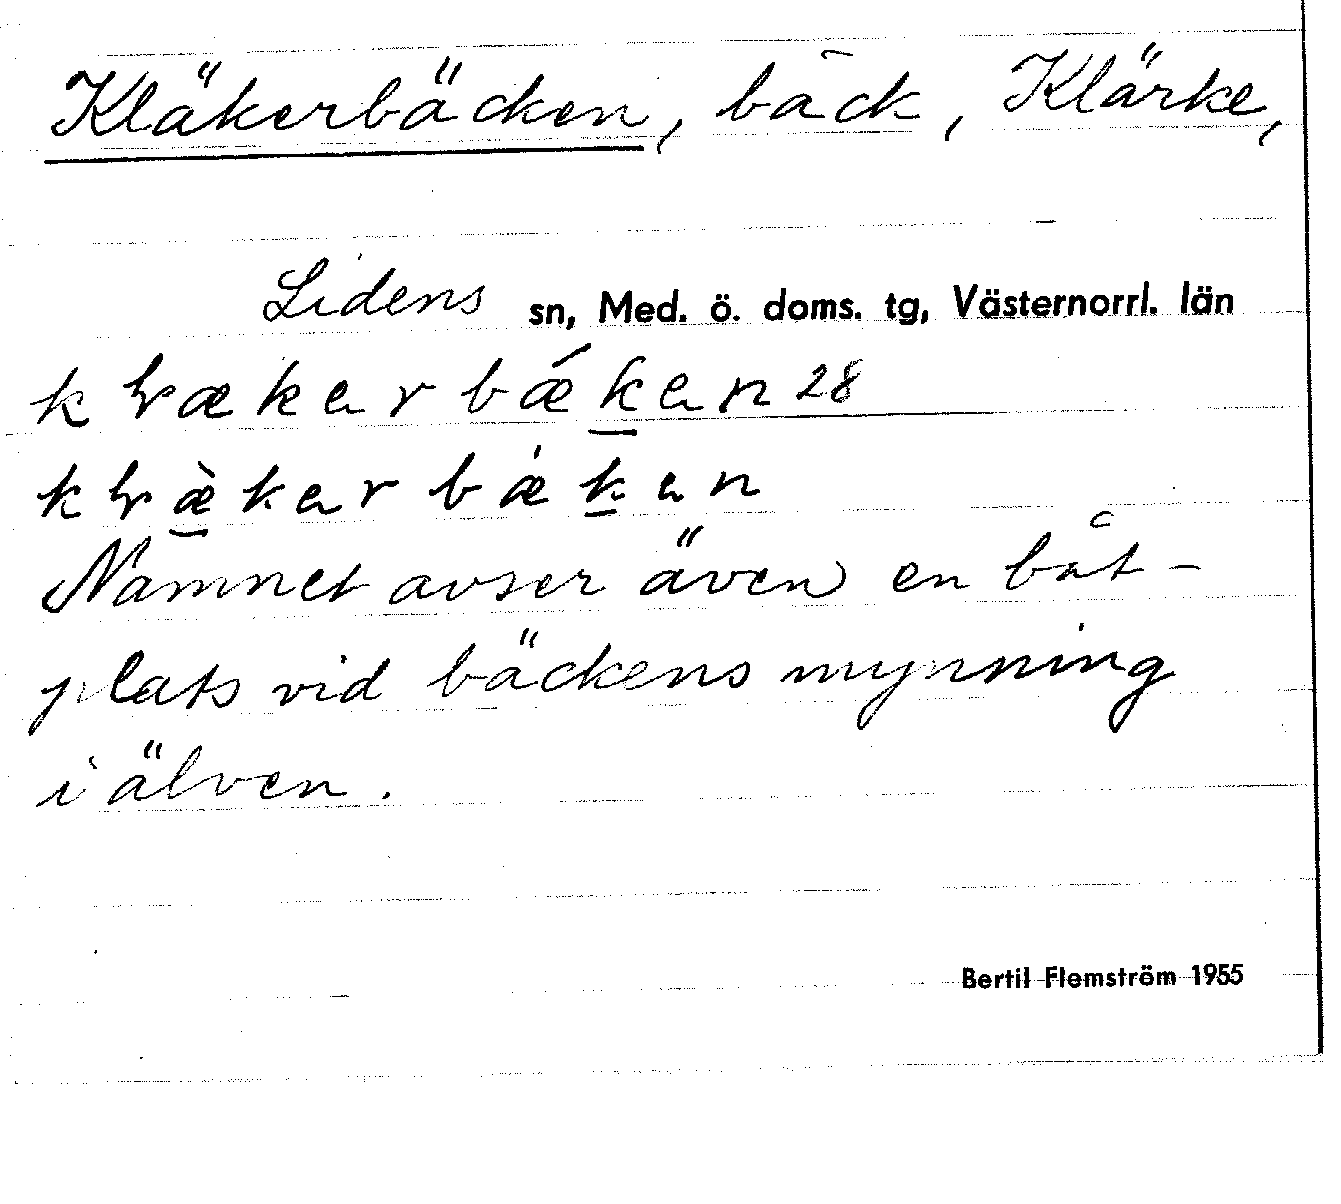 Kläkerbäcken, bäck, Klärke,
Lidens sn, Med. ö. doms. tg, Västernorrl. län
Namnet avser även en båt-
plats vid bäckens mynning
i älven.
Bertil Flemström 1955